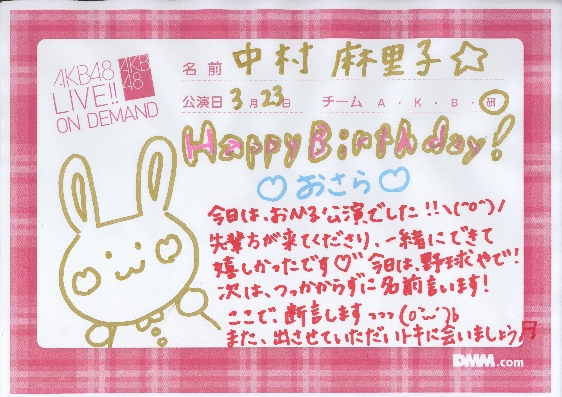 AKB48
LIVE!!
ON DEMAND
AKB
48
名前 中村 麻里子☆
公演日 3月23日 チーム A・K・B・研
Happy Birthday!
♡おさら♡
今日は、おひる公演でした!!\(^o^)/
先輩方が来てくださり、一緒にできて
嬉しかったです♡" 今日は、野球やで!
次は、つっかからずに名前言います!
ここで断言しますっっっ
また、出させていただいトキに会いましょう
DMM.com